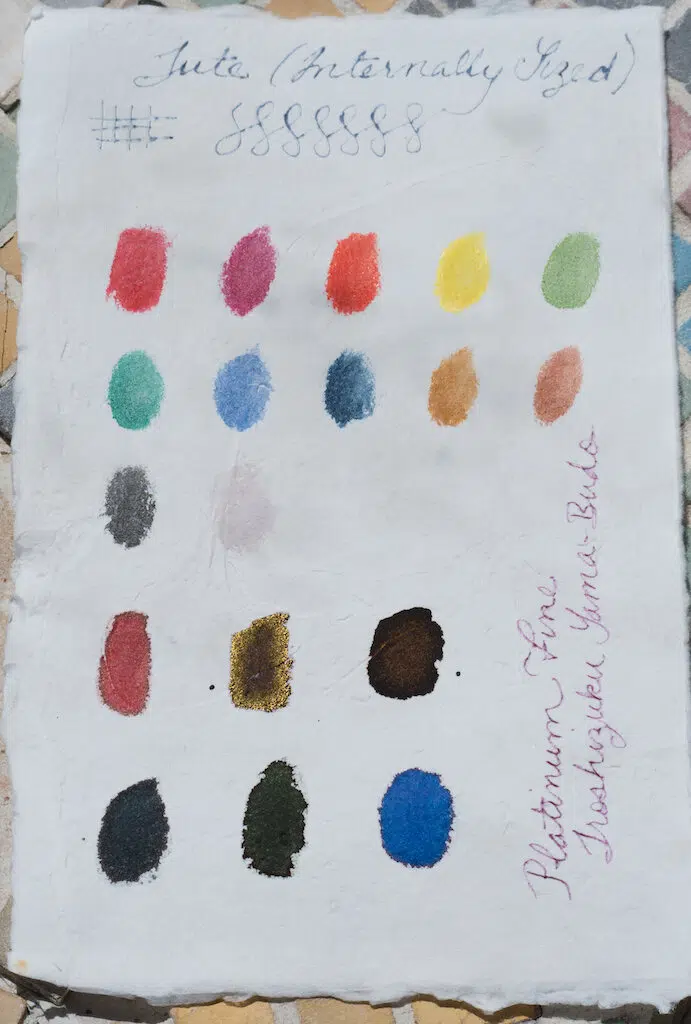 Jute (Internally Sized)
Platinum Fine
Iroshizuku Yama-Budo